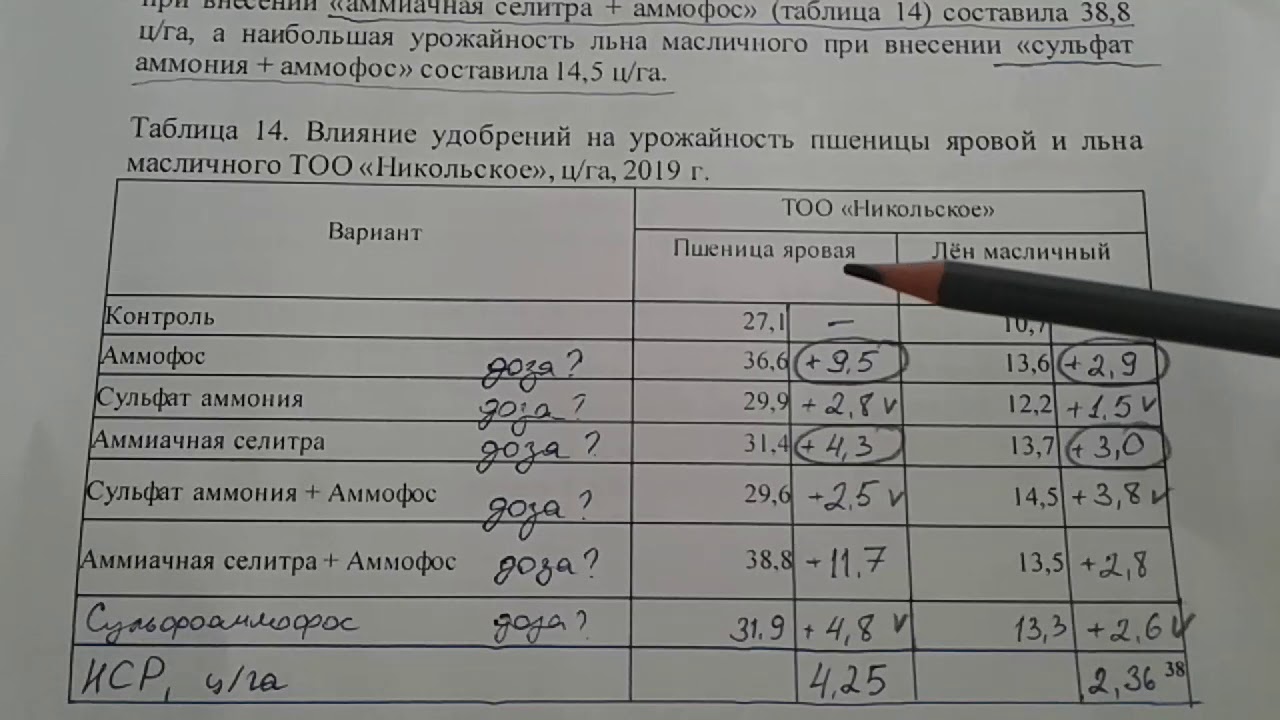 при внесении «аммиачная селитра + аммофос» (таблица 14) составила 38,8
ц/га, а наибольшая урожайность льна масличного при внесении «сульфат
аммония + аммофос» составила 14,5 ц/га.
Таблица 14. Влияние удобрений на урожайность пшеницы яровой и льна
масличного ТОО «Никольское», ц/га, 2019 г.
Вариант
ТОО «Никольское»
Пшеница яровая Лён масличный
Контроль 27,1 — 10,7
Аммофос доза? 36,6 +9,5 13,6 +2,9
Сульфат аммония доза? 29,9 +2,8 v 12,2 +1,5 v
Аммиачная селитра доза? 31,4 +4,3 13,7 +3,0
Сульфат аммония + Аммофос доза? 29,6 +2,5 v 14,5 +3,8 v
Аммиачная селитра + Аммофос доза? 38,8 +11,7 13,5 +2,8
Сульфоаммофос доза? 31.9 +4,8 v 13,3 +2,6 v
НСР, ц/га 4,25 2,36 38